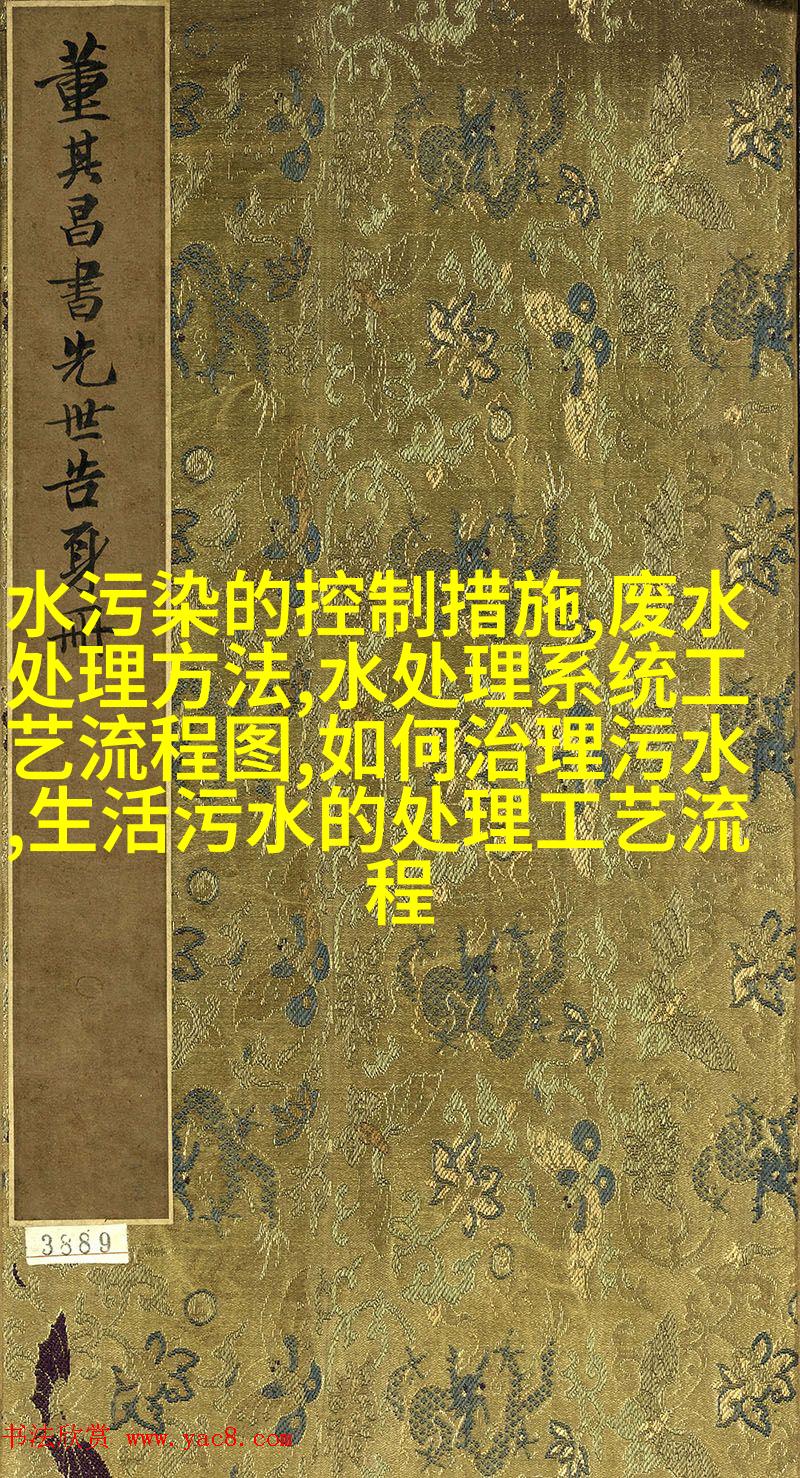 董其昌書先世告身冊
水污染的控制措施,废水
处理方法,水处理系统工
艺流程图,如何治理污水
,生活污水的处理工艺流
程
3889
书法欣赏 www.yac8.com